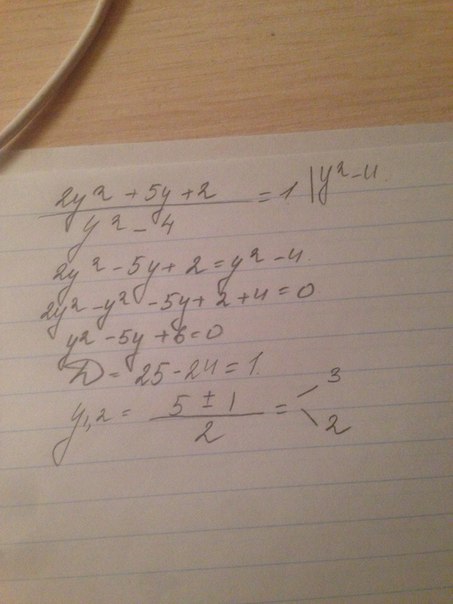 2y² + 5y + 2 / y² - 4 = 1 | y² - 4
2y² - 5y + 2 = y² - 4
2y² - y² - 5y + 2 + 4 = 0
y² - 5y + 6 = 0
D = 25 - 24 = 1
y₁,₂ = 5 ± 1 / 2 = 3
2